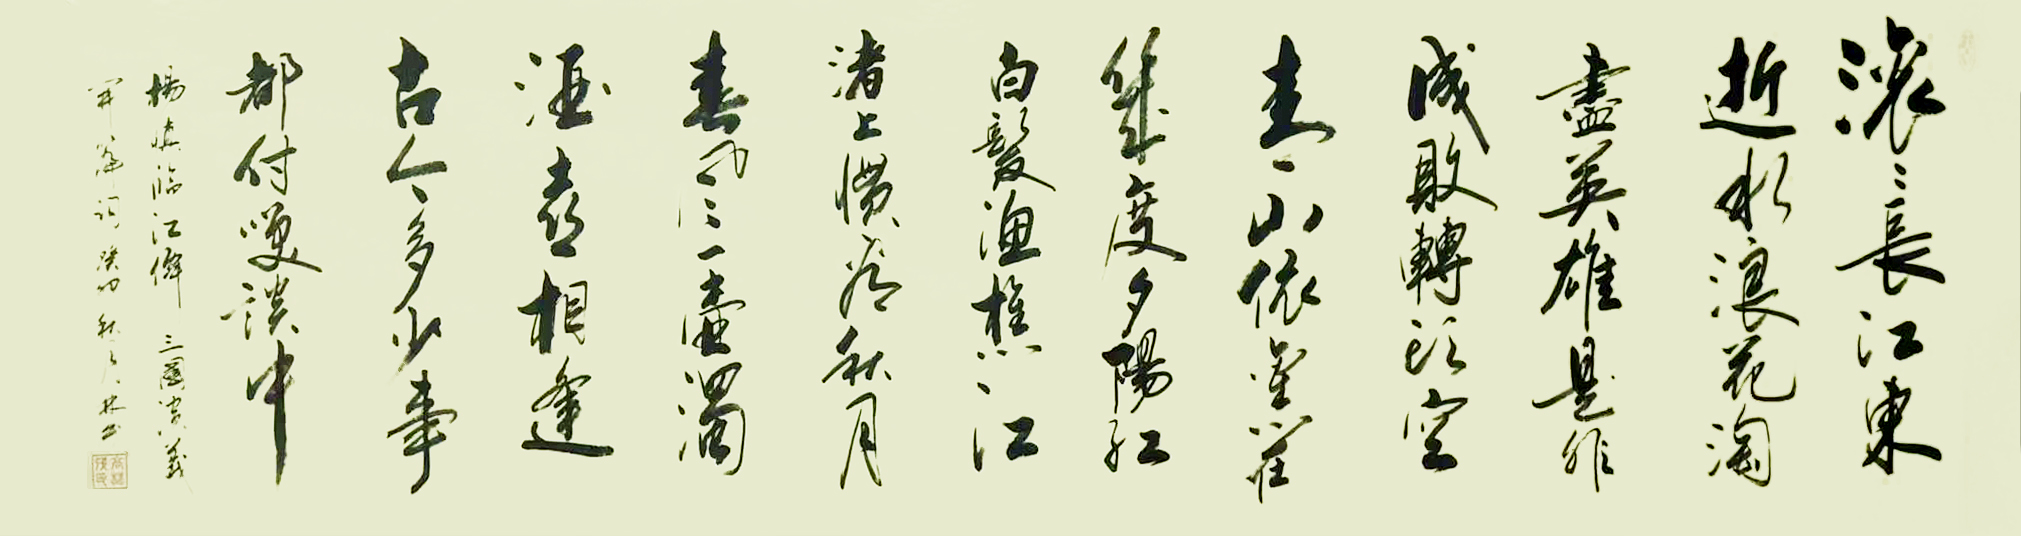 滚〻長江東
逝水浪花淘
盡英雄是非
成敗轉頭空
青山依舊在
幾度夕陽紅
白髮漁樵江
渚上慣看秋月
春風一壺濁
酒喜相逢
古今多少事
都付笑談中
楊慎臨江僊 三國演義
開篇詞 癸卯秋月 林書